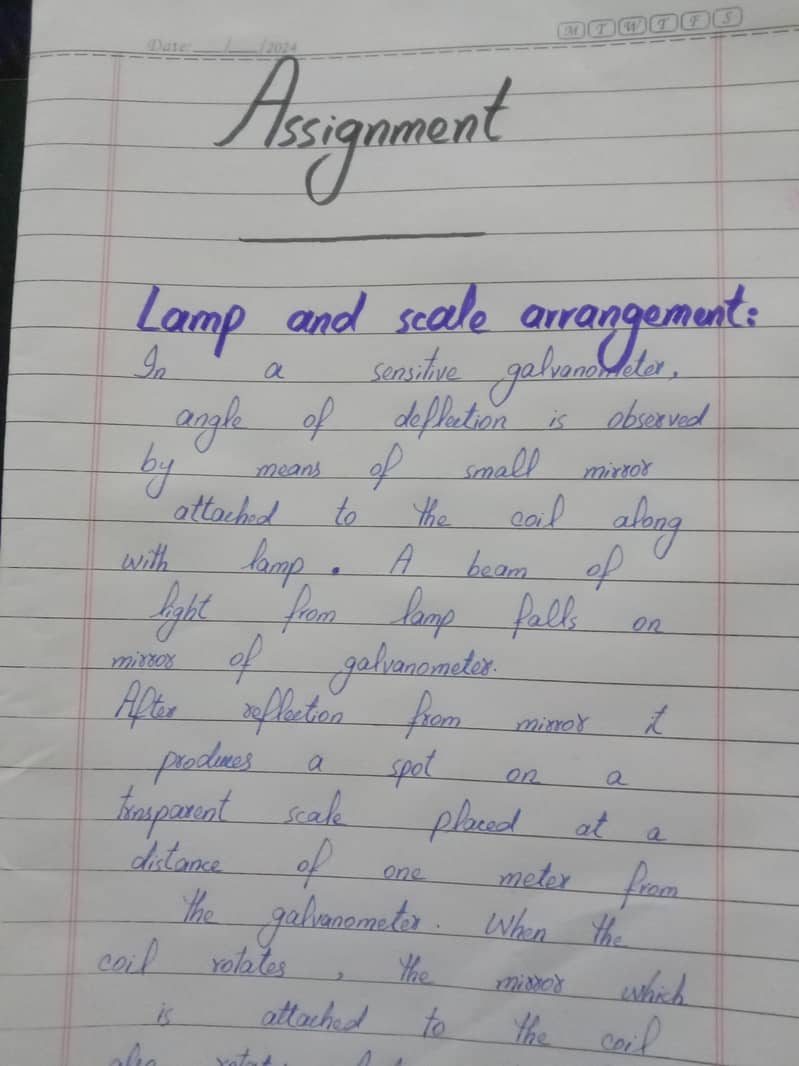 M T W T F S
Date: ___/___/2024
Assignment
Lamp and scale arrangement:
In a sensitive galvanometer,
angle of deflection is observed
by means of small mirror
attached to the coil along
with lamp. A beam of
light from lamp falls on
mirror of galvanometer.
After reflection from mirror it
produces a spot on a
trnsparent scale placed at a
distance of one meter from
the galvanometer. When the
coil rotates, the mirror which
is attached to the coil
also